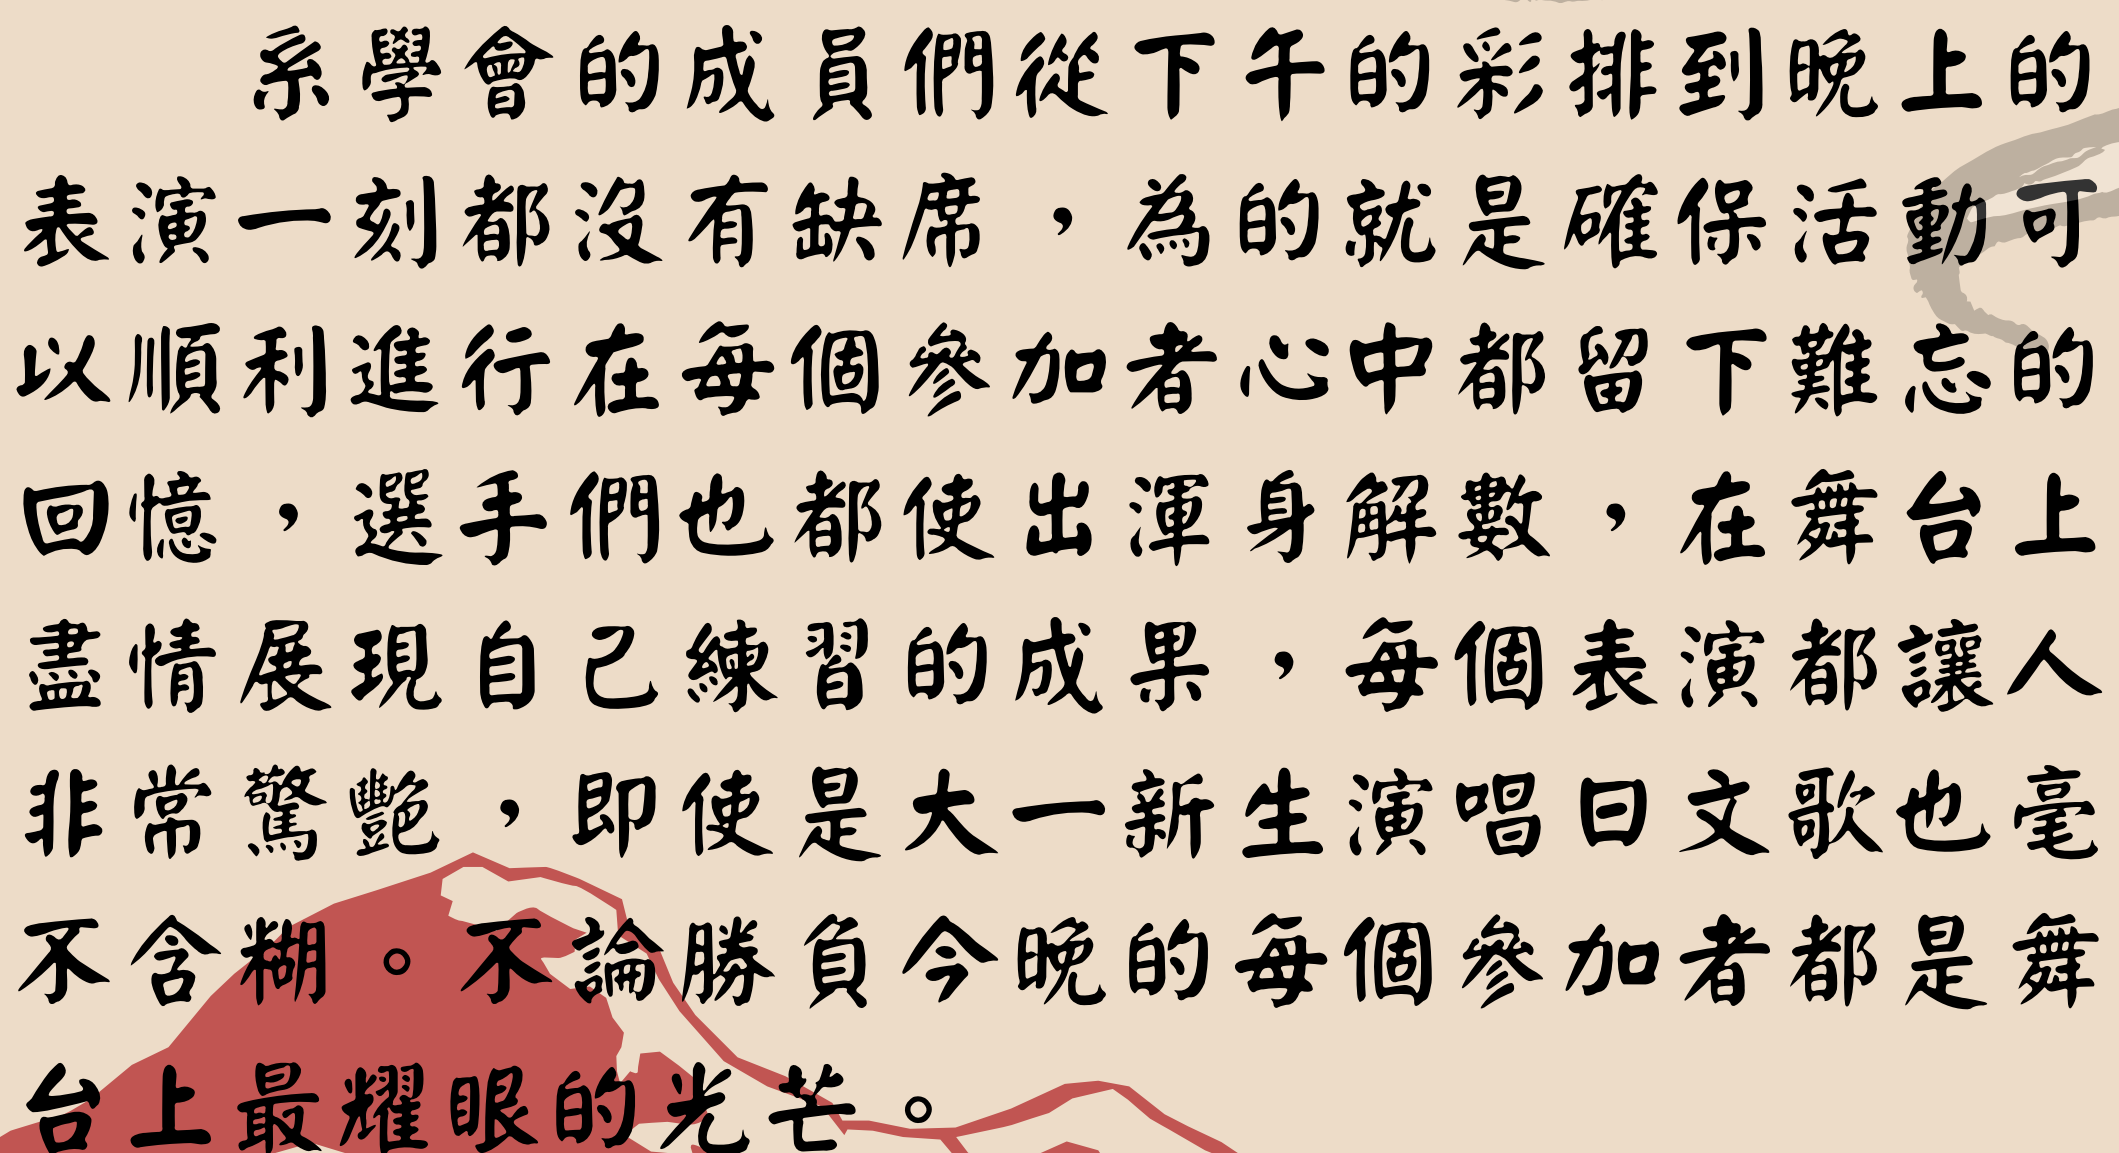 系學會的成員們從下午的彩排到晚上的
表演一刻都沒有缺席，為的就是確保活動可
以順利進行在每個參加者心中都留下難忘的
回憶，選手們也都使出渾身解數，在舞台上
盡情展現自己練習的成果，每個表演都讓人
非常驚艷，即使是大一新生演唱日文歌也毫
不含糊。不論勝負今晚的每個參加者都是舞
台上最耀眼的光芒。